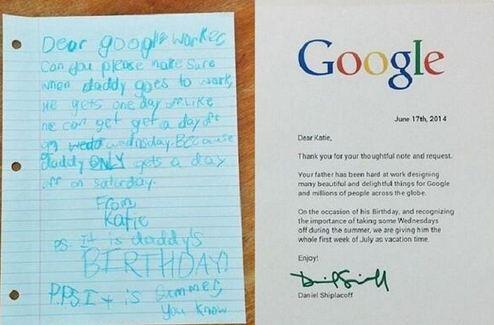 Dear google worker,
Can you please make sure
when daddy goes to work,
he gets one day off. Like
he can get get a day off
on wedn wednsday. Because
daddy ONLY gets a day
off on saturday.
From,
Katie
P.S. It is daddy's
BIRTHDAY!
P.P.S. It is summer,
you know
Google
June 17th, 2014
Dear Katie,
Thank you for your thoughtful note and request.
Your father has been hard at work designing
many beautiful and delightful things for Google
and millions of people across the globe.
On the occasion of his Birthday, and recognizing
the importance of taking some Wednesdays
off during the summer, we are giving him the
whole first week of July as vacation time.
Enjoy!
Daniel Shiplacoff